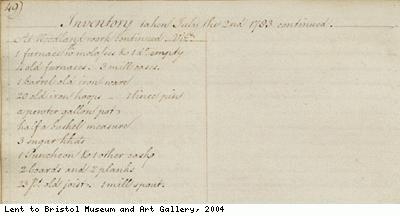 49)
Inventory taken July the 2nd 1783 continued.
At Woodland work continued Vizt
1 furnace wt molasses & 1 do empty
4 old furnaces. 3 mill cases.
1 barrel old iron ware
20 old iron hoops 1 lince pin
a pewter gallon pot
half a bushel measure
3 sugar hhds
1 Puncheon & 1 other cask
2 boards and 2 planks
23 ft old joist. 1 mill spout.
Lent to Bristol Museum and Art Gallery, 2004